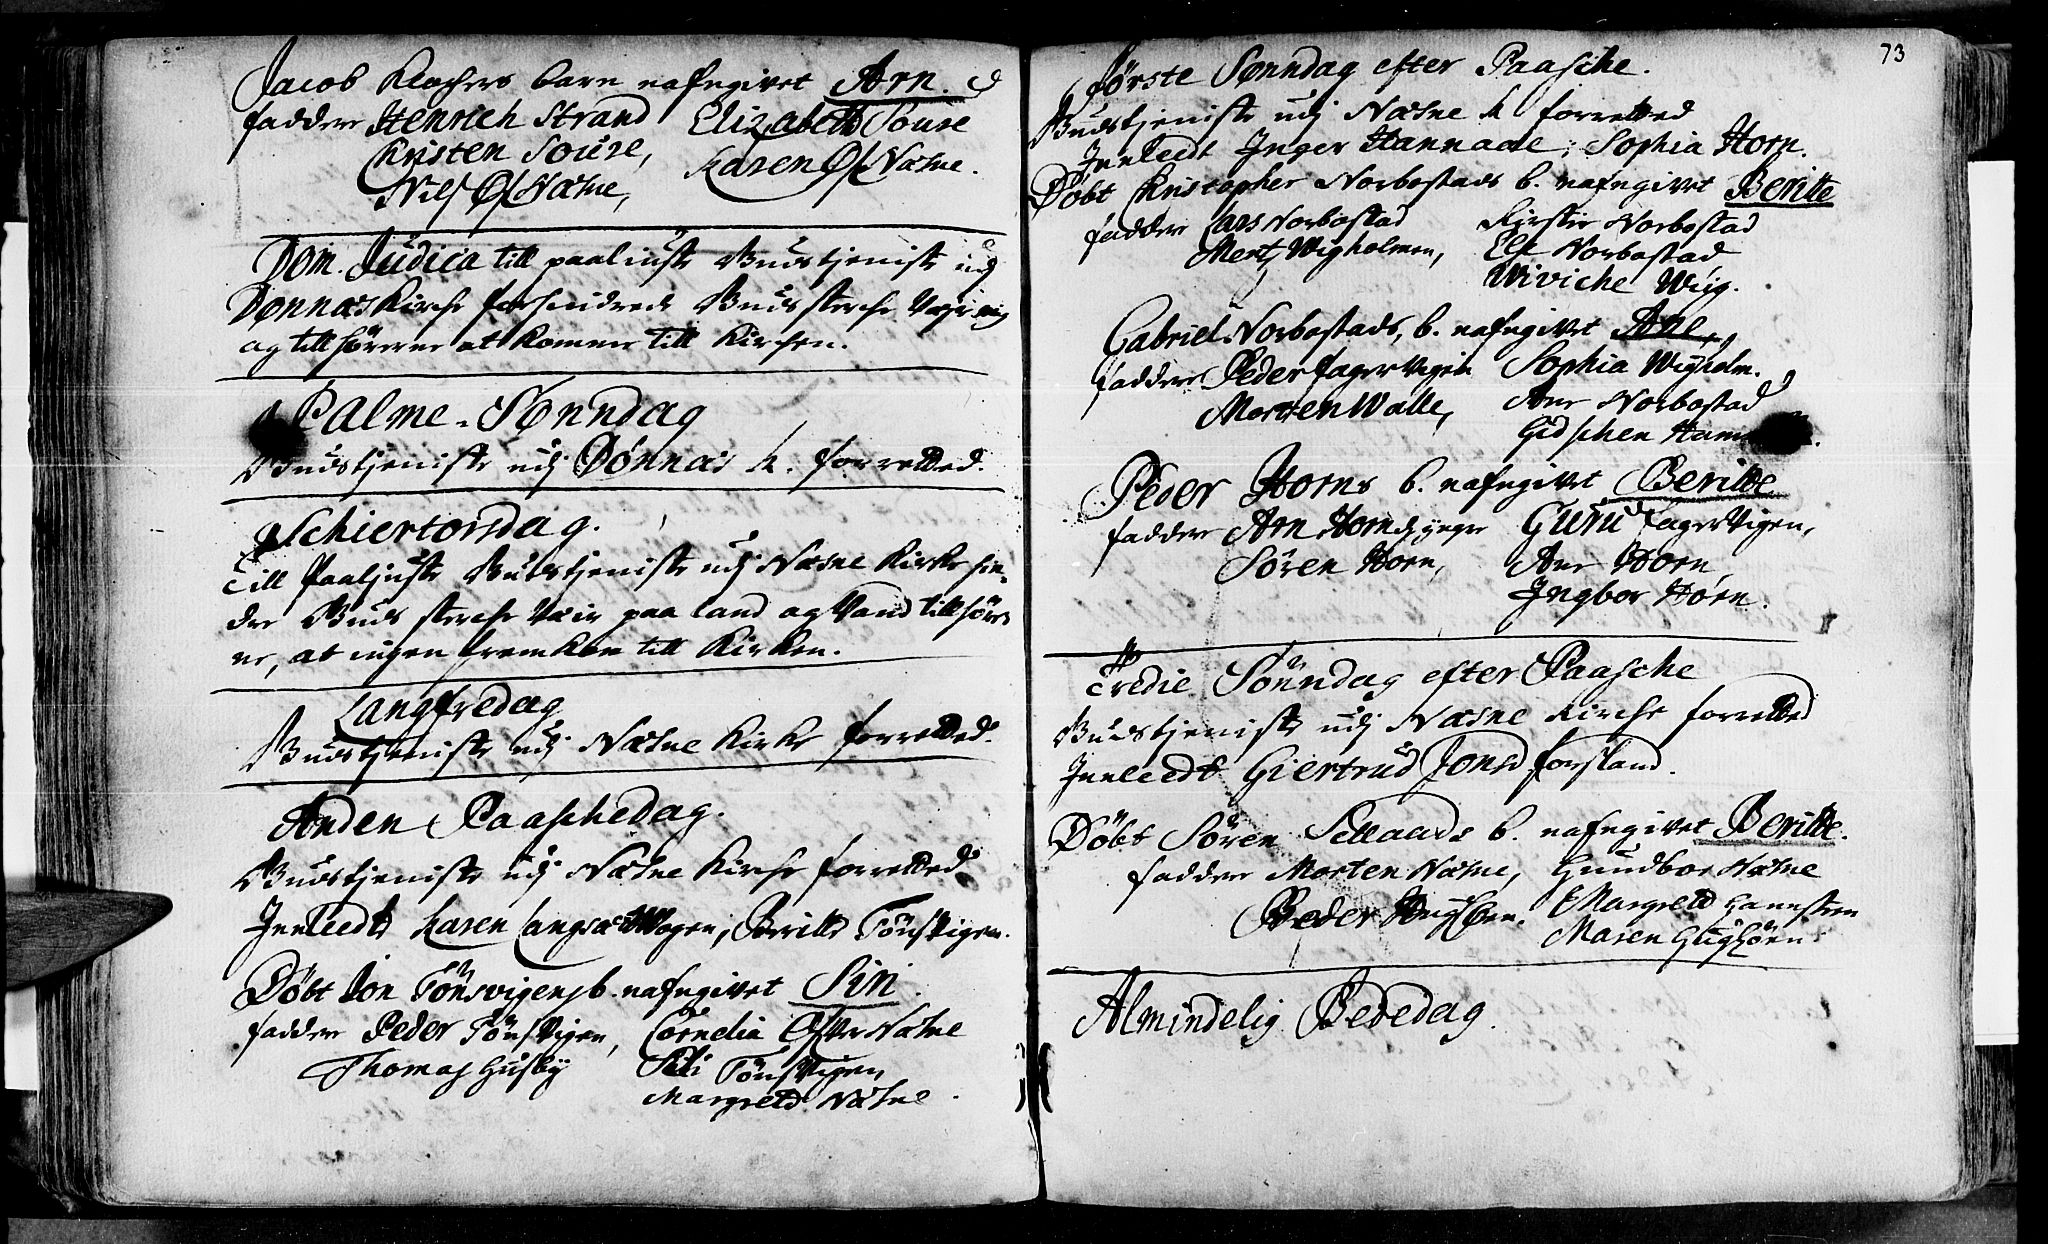 Jacob Klochers barn nafngivet Arn.
faddere Henrich Strand Elizabeth Souse
Kristen Souse, Karen Ofr Næsne.
Nils Ofr Næsne,
Dom. Judica till paaliust Gudstjeniste udj
Dønnæs Kirche forhindrede Guds sterche Vejr mig
og tillhörerne at komme till Kirchen.
Palme-Sønndag
Gudstjeniste udj Dönnæs K. forretted.
Schiertorsdag.
Till Paaljuste Gudstjeniste udj Næsne Kirke hin-
dre Guds sterche Væir paa land og Vand tillhöre-
ne, at ingen fremkom till Kirken.
Langfredag
Gudstjeniste udj Næsne Kirke forretted.
Anden Paaschedag.
Gudstjeniste udj Næsne Kirche forretted.
Innleedt Karen Langsætvogen, Beritte Tönsvigen.
Döbt Jon Tönsvigens b. nafngivet Siri.
faddere Peder Tönsvigen, Cornelia Ofre Næsne
Thomas Husby Sili Tönsvigen,
Margrete Næsne.
73
Første Sønndag efter Paasche.
Gudstjeniste udj Næsne K forretted
Innleedt Inger Hannaae, Sophia Horn.
Döbt Kristopher Norbostads b. nafngivet Beritte
faddere Lars Norbostad Kirstie Norbostad
Mentz Wigholmen, Else Norbostad
Wiviche Wiig.
Gabriel Norbostads, b. nafngivet Ane
faddere Peder fagervigen Sophia Wigholm.
Morten Walle, Ane Norbostad
Gidschen
Peder Horns b. nafngivet Beritte
faddere Arn Horn Guru fagervigen,
Sören Horn, Ane Horn
Ingbor Hörn.
Tredie Sönndag efter Paasche
Gudstjeniste udj Næsne Kirche forretted
Innleedt Giertrud Jonsd forsland.
Döbt Sören Sellaads b. nafngivet Beritte.
faddere Morten Næsne, Gundbor Næsne
Peder Margrete
Maren
Almindelig Bededag.